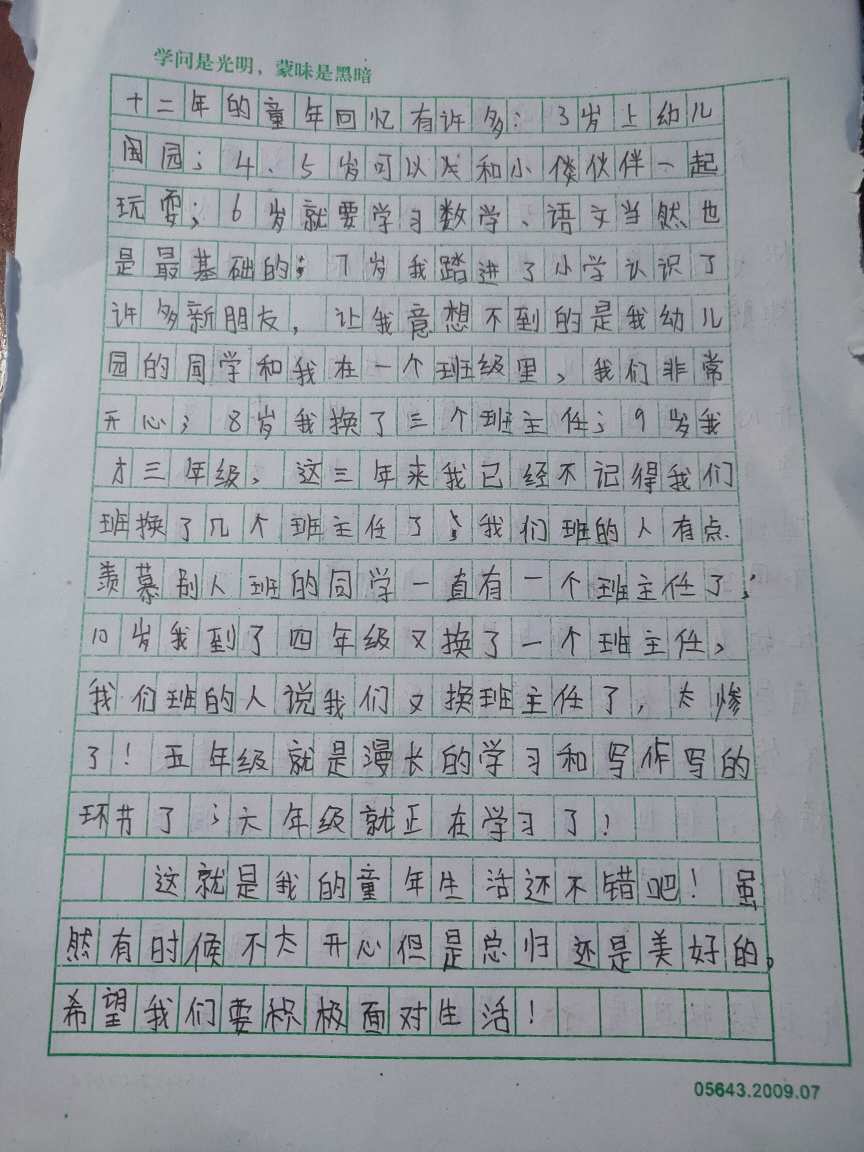 学问是光明，蒙昧是黑暗
十二年的童年回忆有许多：3岁上幼儿
园；4、5岁可以和小伙伴一起
玩耍；6岁就要学习数学、语文当然也
是最基础的；7岁我踏进了小学认识了
许多新朋友，让我意想不到的是我幼儿
园的同学和我在一个班级里、我们非常
开心；8岁我换了三个班主任；9岁我
才三年级、这三年来我已经不记得我们
班换了几个班主任了；我们班的人有点
羡慕别人班的同学一直有一个班主任了；
10岁我到了四年级又换了一个班主任，
我们班的人说我们又换班主任了，太惨
了！五年级就是漫长的学习和写作写的
环节了；六年级就正在学习了！
这就是我的童年生活还不错吧！虽
然有时候不太开心但是总归还是美好的。
希望我们要积极面对生活！
05643.2009.07